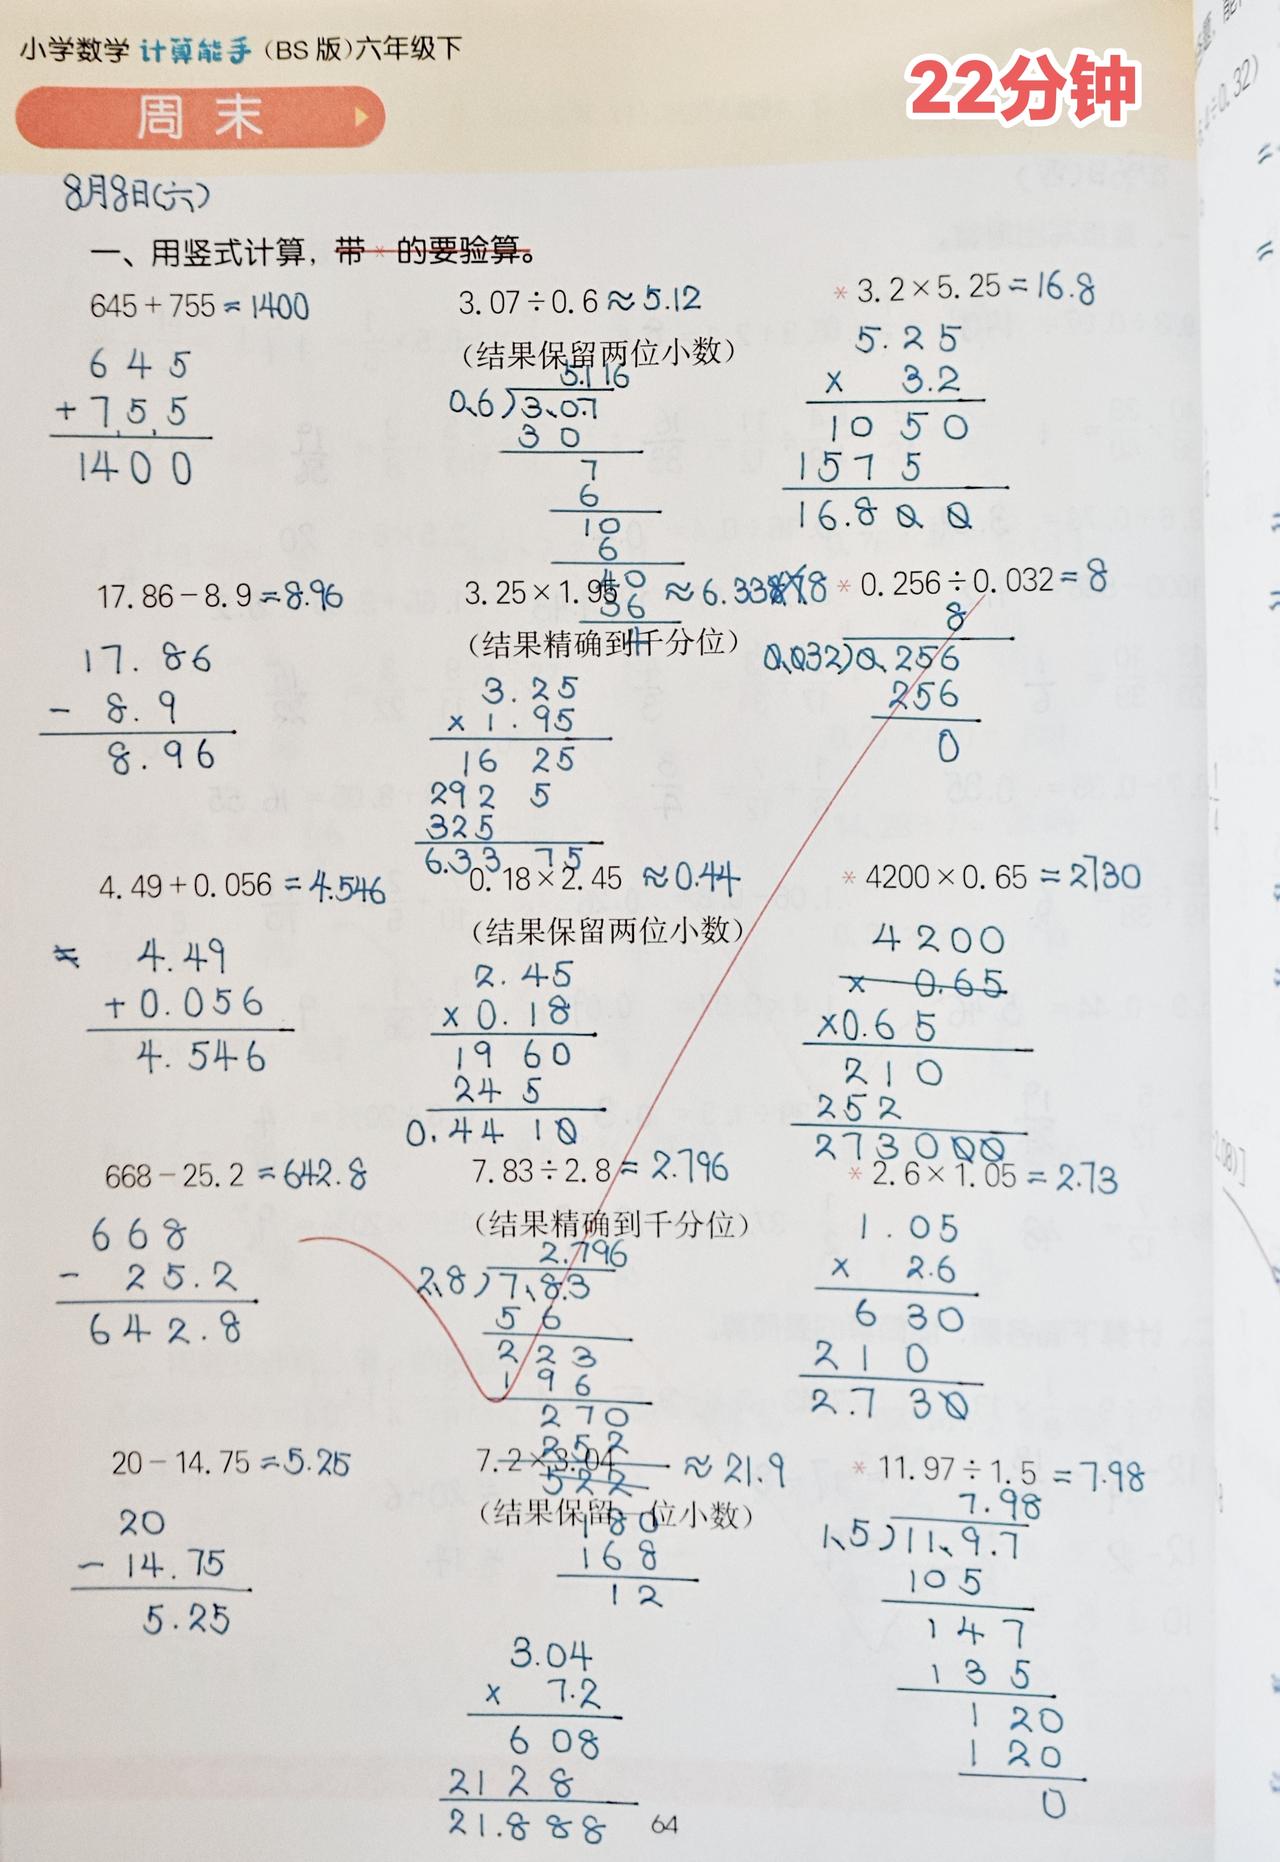 小学数学 计算能手 (BS 版)六年级下
22分钟
周末
8月8日(六)
一、用竖式计算，带 * 的要验算。
645+755=1400
645
+755
1400
3.07÷0.6≈5.12
(结果保留两位小数)
5.116
0.6)3.07
30
7
6
10
6
40
36
4
*3.2×5.25=16.8
5.25
× 3.2
1050
1575
16.800
17.86-8.9=8.96
17.86
- 8.9
8.96
3.25×1.95≈6.338
(结果精确到千分位)
3.25
×1.95
1625
2925
325
6.3375
*0.256÷0.032=8
8
0.032)0.256
256
0
4.49+0.056=4.546
4.49
+0.056
4.546
0.18×2.45≈0.44
(结果保留两位小数)
2.45
×0.18
1960
245
0.4410
*4200×0.65=2730
4200
× 0.65
×0.65
210
252
273000
668-25.2=642.8
668
- 25.2
642.8
7.83÷2.8=2.796
(结果精确到千分位)
2.796
2.8)7.83
56
223
196
270
252
522
180
168
12
*2.6×1.05=2.73
1.05
× 2.6
630
210
2.730
20-14.75=5.25
20
-14.75
5.25
7.2×3.04≈21.9
(结果保留一位小数)
3.04
× 7.2
608
2128
21.888
*11.97÷1.5=7.98
7.98
1.5)11.9.7
105
147
135
120
120
0
64